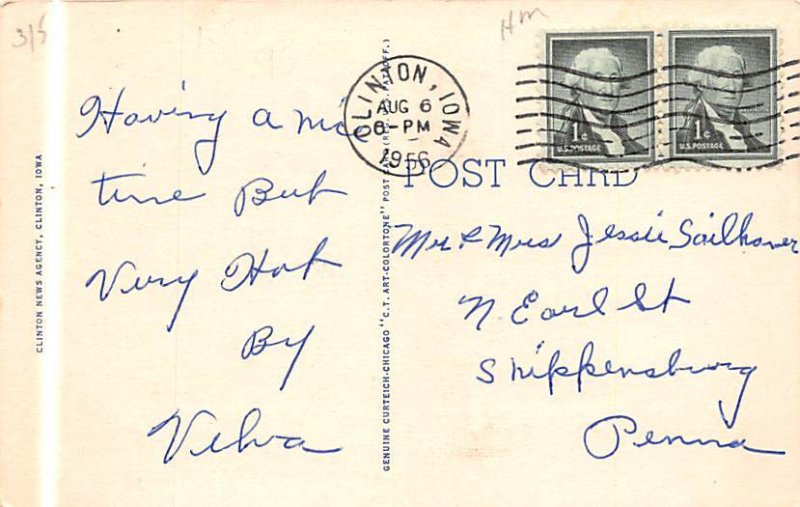 3/5
Hm
CLINTON, IOWA
AUG 6
6-PM
1956
1¢
U.S. POSTAGE
1¢
U.S. POSTAGE
POST CARD
Having a nice
time But
Very Hot
By
Velva
Mr & Mrs Jessie Sailhamer
N Earl St
Shippensburg
Penna
CLINTON NEWS AGENCY, CLINTON, IOWA
GENUINE CURTEICH-CHICAGO "C.T. ART-COLORTONE" POST CARD (REG. U.S. PAT. OFF.)